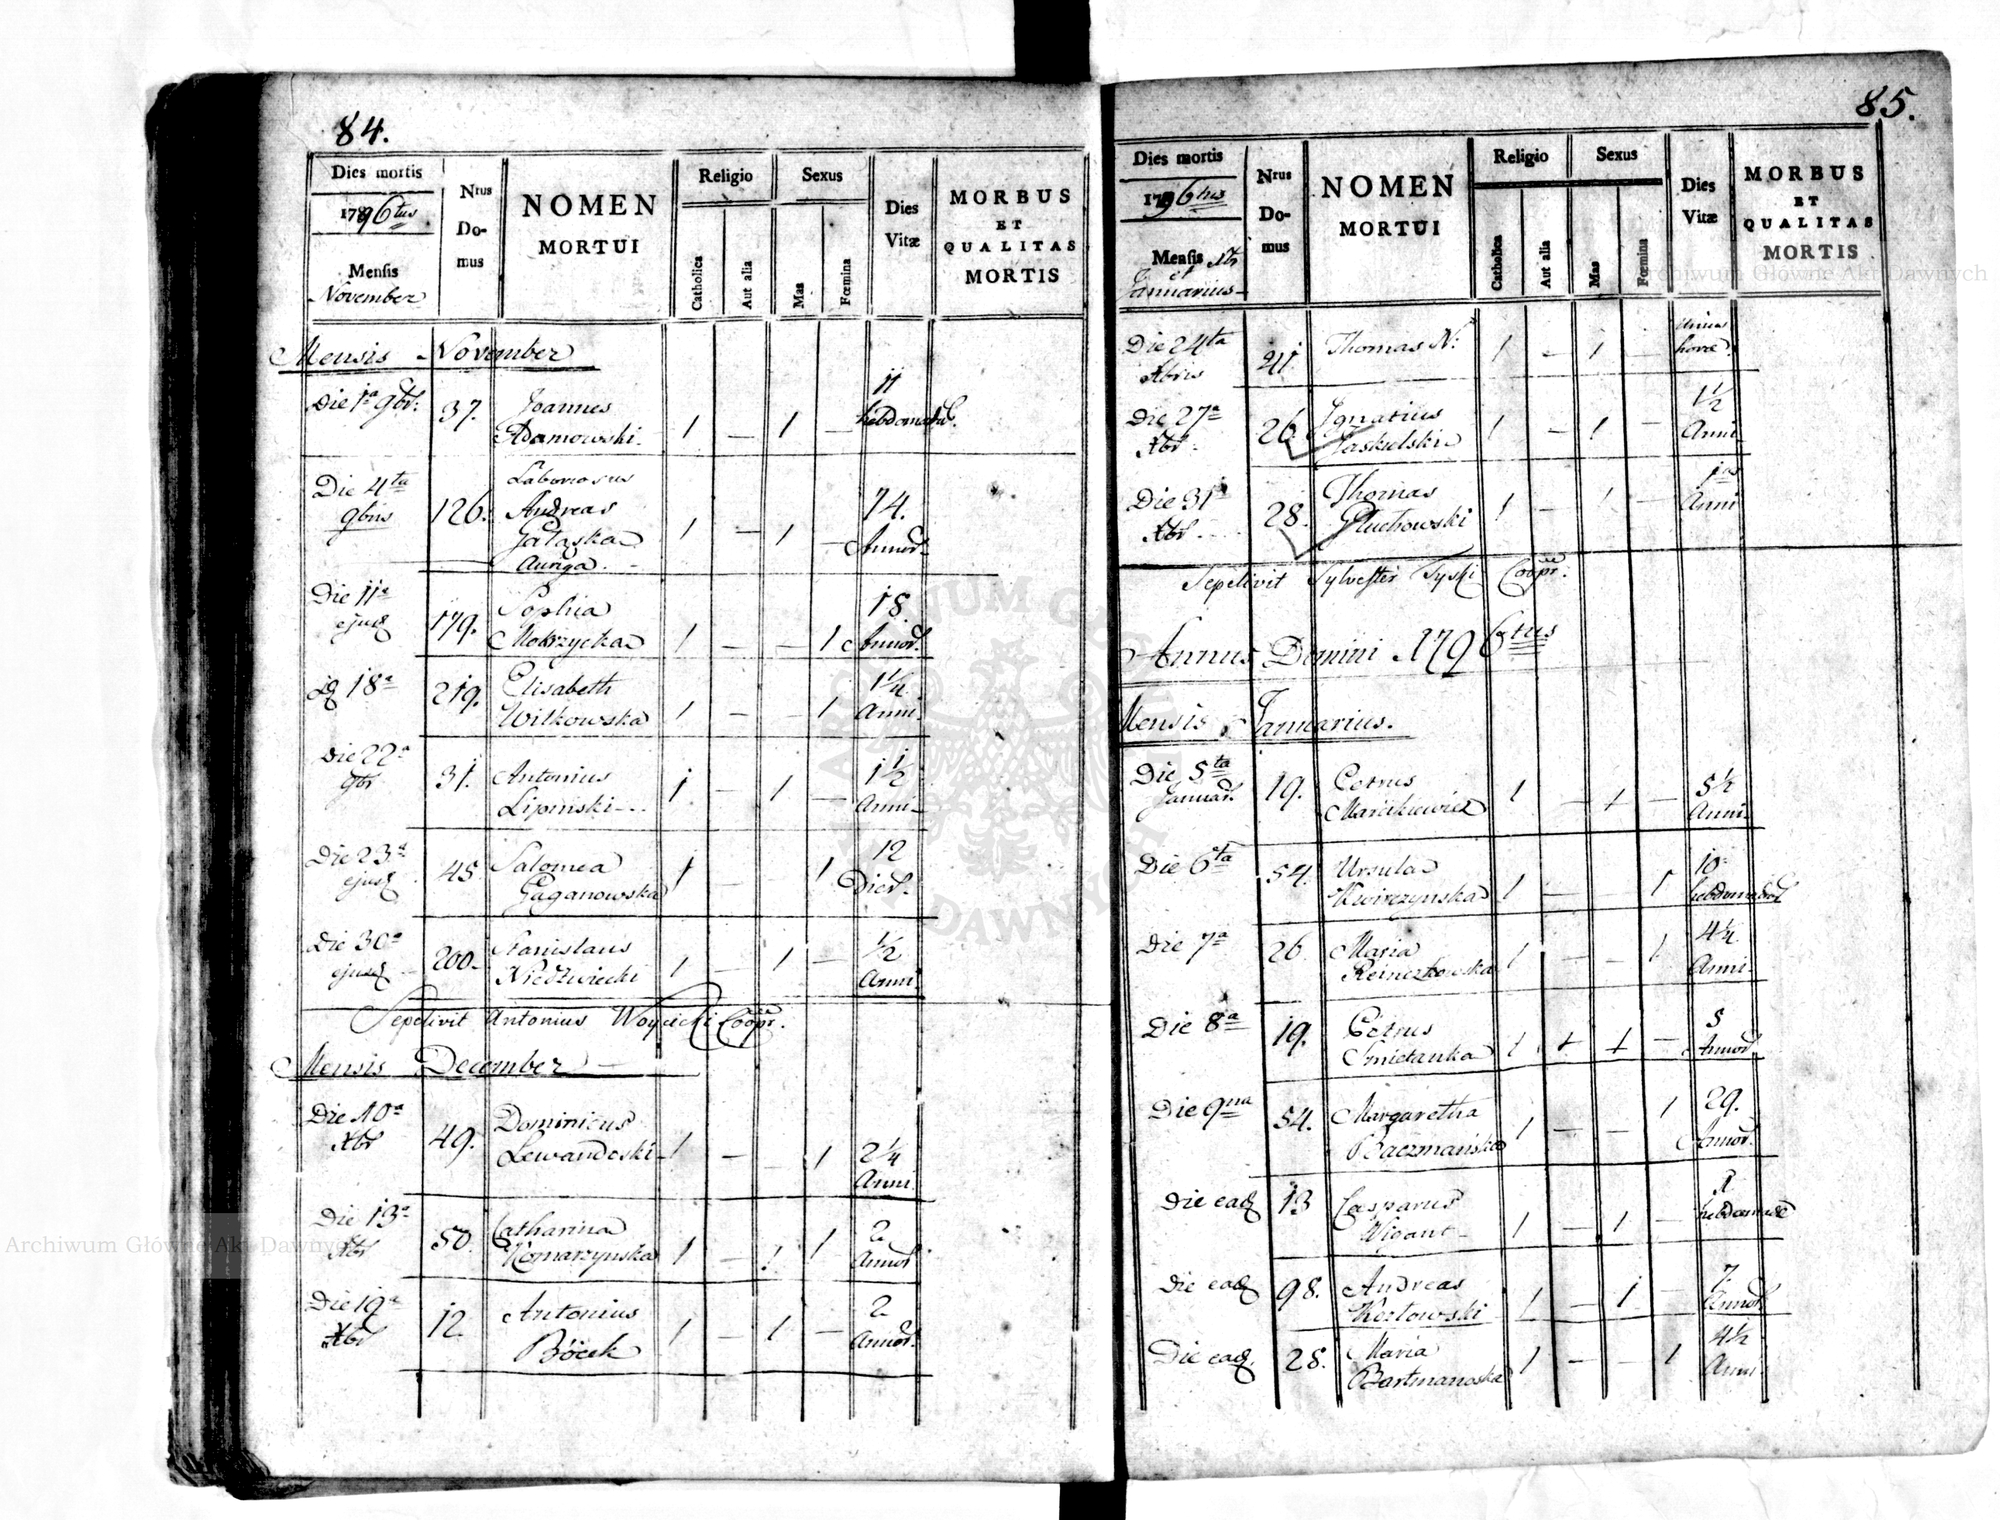 84.
Dies mortis
1796tus
Mensis
November
Nrus
Do-
mus
NOMEN
MORTUI
Religio
Catholica
Aut alia
Sexus
Mas
Fœmina
Dies
Vitæ
MORBUS
ET
QUALITAS
MORTIS
Mensis November
Die 1a 9br: 37. Joannes Adamowski 1 — 1 — 11 hebdomad.
Die 4ta 9bris 126. Laboriosus Andreas Gałaska Auriga. 1 — 1 — 74. Annor.
Die 11a ejusd 179. Sophia Mokrzycka 1 — — 1 18. Annor.
18a 219. Elisabeth Witkowska 1 — — 1 1 1/4 Anni
Die 22a 9br 31. Antonius Lipinski 1 — 1 — 1 1/2 Anni
Die 23a ejusd 45 Salomea Gaganowska 1 — — 1 12 Dier.
Die 30a ejusd 200 Stanislaus Niedzwiecki 1 — 1 — 1/2 Anni
Sepelivit Antonius Woycicki Coopr.
Mensis December
Die 10a Xbr 49. Dominicus Lewandoski 1 — 1 2 1/4 Anni
Die 13a Xbr 50. Catharina Komarzynska 1 — 1 1 2 Annor
Die 19a Xbr 12 Antonius Böcek 1 — 1 — 2 Annor.
85.
Dies mortis
1796tus
Mensis Xbr
et
Januarius
Nrus
Do-
mus
NOMEN
MORTUI
Religio
Catholica
Aut alia
Sexus
Mas
Fœmina
Dies
Vitæ
MORBUS
ET
QUALITAS
MORTIS
Die 24ta Xbris 41 Thomas N: 1 — 1 — Unius horæ.
Die 27a Xbr 26. Ignatius Jaskulski 1 — 1 — 1 1/2 Anni
Die 31 Xbr 28. Thomas Głuchowski 1 — 1 — 1us Anni
Sepelivit Sylvester Tyski Coopr.
Annus Domini 1796tus
Mensis Januarius.
Die 5ta Januar. 19. Petrus Marcikiewicz 1 — 1 — 5 1/2 Anni
Die 6ta 54. Ursula Kwirczynska 1 — — 1 10 hebdomad
Die 7a 26 Maria Reinczkowska 1 — — 1 4 1/4 Anni
Die 8a 19. Petrus Smietanka 1 + + — 5 Annor.
Die 9na 54. Margaretha Baczmańska 1 — — 1 29. Annor.
Die ead 13 Casparus Wigant 1 — 1 — hebdomadæ
Die ead 98. Andreas Kozłowski 1 — 1 — 7. Annor
Die ead. 28. Maria Bartmanoska 1 — — 1 4 1/2 Anni
ARCHIWUM GŁÓWNE AKT DAWNYCH
Archiwum Główne Akt Dawnych
Archiwum Główne Akt Dawnych